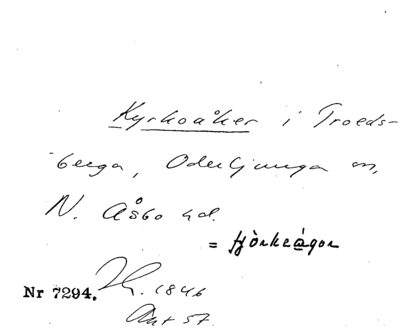 Kyrkoåker i Troeds-
berga, Oderljunga sn,
N. Åsbo hd.
= tjörkeågor
Nr 7294. 1846